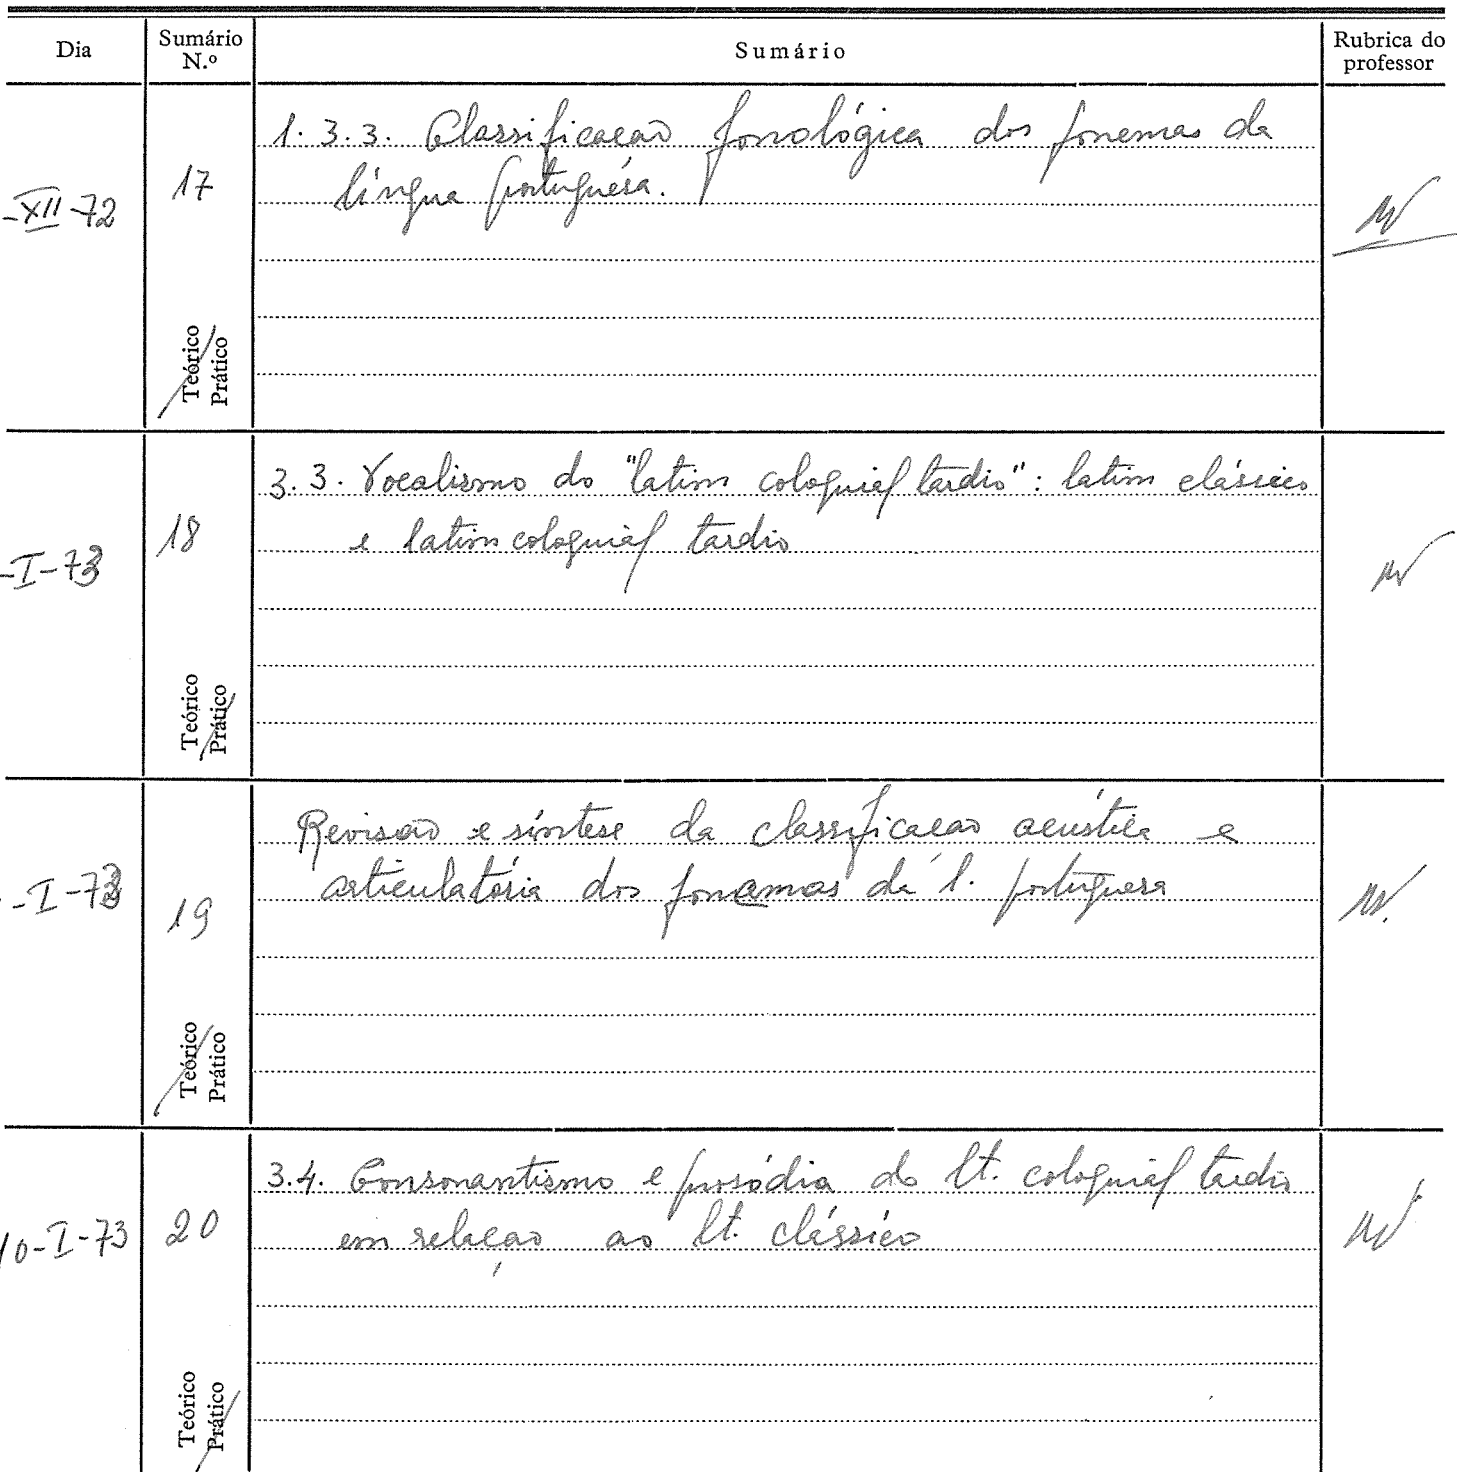 Dia
Sumário N.º
Sumário
Rubrica do professor
-XII-72
17
Teórico
Prático
1.3.3. Classificacao fonológica dos fonemas da
língua portuguesa.
-I-73
18
Teórico
Prático
3.3. Vocalismo do "latim coloquial tardio": latim clássico
e latim coloquial tardio
-I-73
19
Teórico
Prático
Revisao e síntese da classificacao acústica e
articulatória dos fonemas da l. portuguesa
10-I-73
20
Teórico
Prático
3.4. Consonantismo e prosódia do lt. coloquial tardio
em relaçao ao lt. clássico